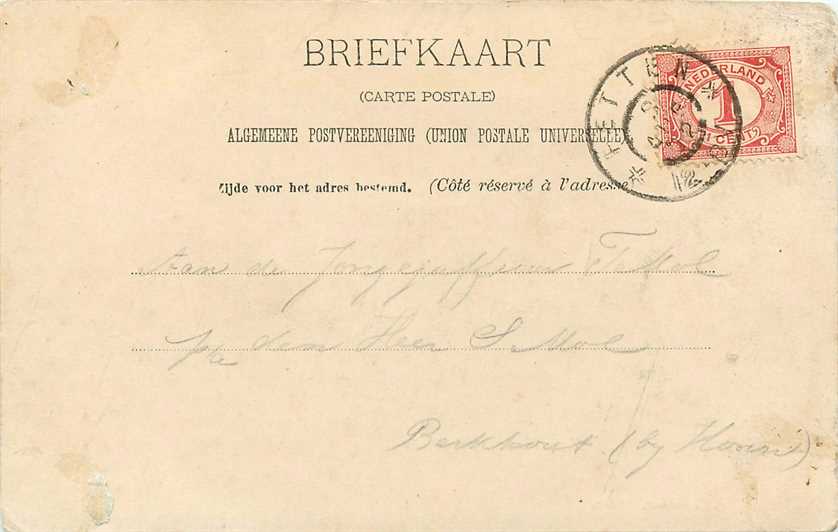 BRIEFKAART
(CARTE POSTALE)
ALGEMEENE POSTVEREENIGING (UNION POSTALE UNIVERSELLE)
Zijde voor het adres bestemd. (Côté réservé à l'adresse
PETTEN
NEDERLAND
1
CENT
Aan de Jongejuffrouw T Mol
p/a den Heer S Mol
Berkhout (by Hoorn)